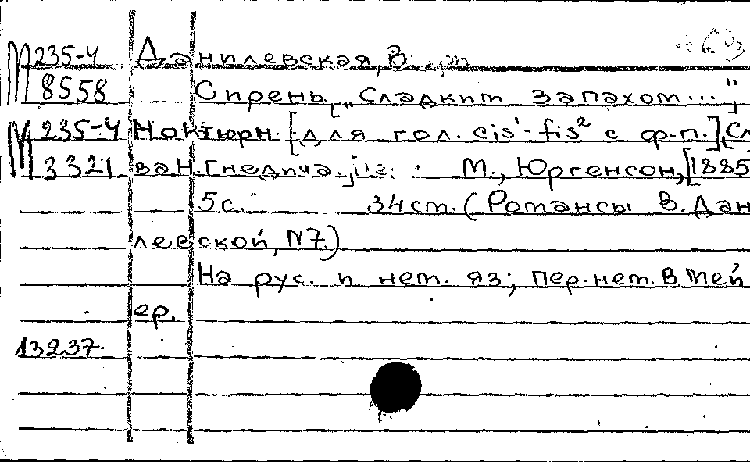 М 235-4 Данилевская, В.
8558 Сирень. ["Сладким запахом ..."]
М 235-4 Ноктюрн [для гол. cis¹-fis² с ф-п.], Сл.
3321 ван Гнедича, М., Юргенсон, [1885
5с. 34см. (Романсы В. Дан
левской, N7.)
На рус. и нем. яз; пер. нем. В Мей
ер.
13237